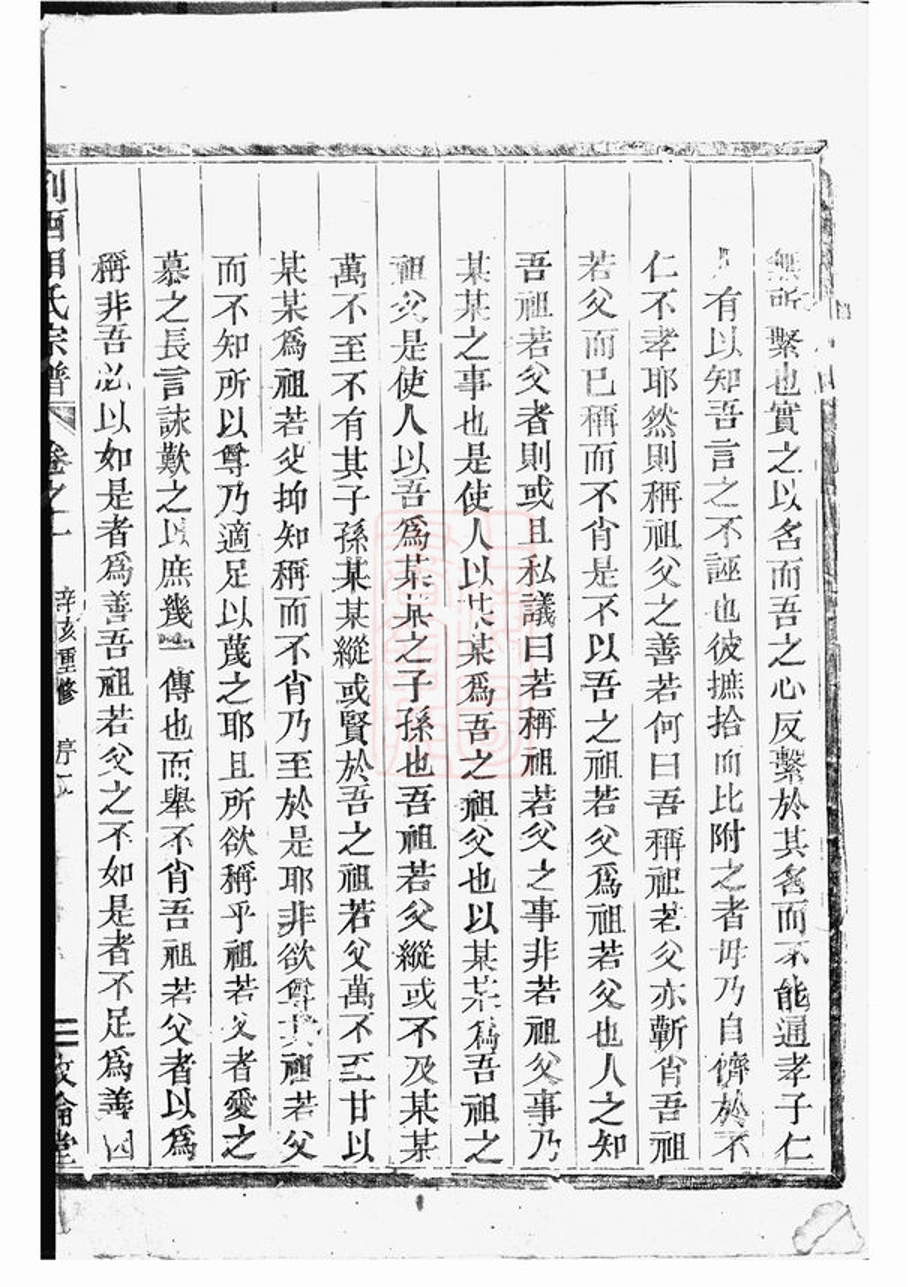 無所繫也實之以名而吾之心反繫於其名而不能通孝子仁
有以知吾言之不誣也彼摭拾而比附之者毋乃自儕於不
仁不孝耶然則稱祖父之善若何曰吾稱祖若父亦蘄肖吾祖
若父而已稱而不肖是不以吾之祖若父爲祖若父也人之知
吾祖若父者則或且私議曰若稱祖若父之事非若祖父事乃
某某之事也是使人以某某爲吾之祖父也以某某爲吾祖之
祖父是使人以吾爲某某之子孫也吾祖若父縱或不及某某
萬不至不有其子孫某某縱或賢於吾之祖若父萬不至甘以
某某爲祖若父抑知稱而不肖乃至於是耶非欲尊其祖若父
而不知所以尊乃適足以蔑之耶且所欲稱乎祖若父者愛之
慕之長言詠歎之以庶幾一傳也而舉不肖吾祖若父者以爲
稱非吾必以如是者爲善吾祖若父之不如是者不足爲善因
氏宗譜 卷之一 辛亥重修 序 二 敦倫堂